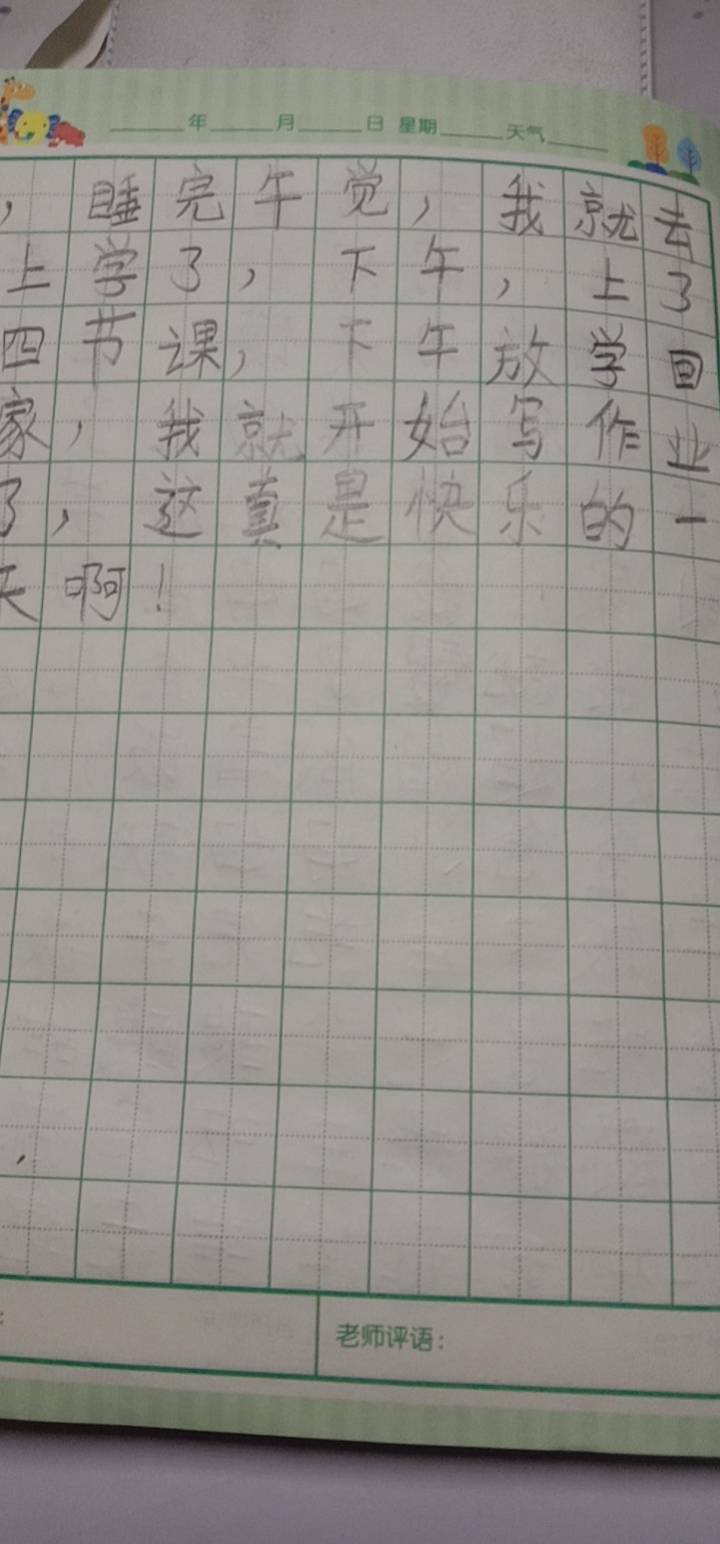 年 月 日 星期 天气
，睡完午觉，我就去
上学了，下午，上了
四节课，下午放学回
家，我就开始写作业
了，这真是快乐的一
天啊！
老师评语：